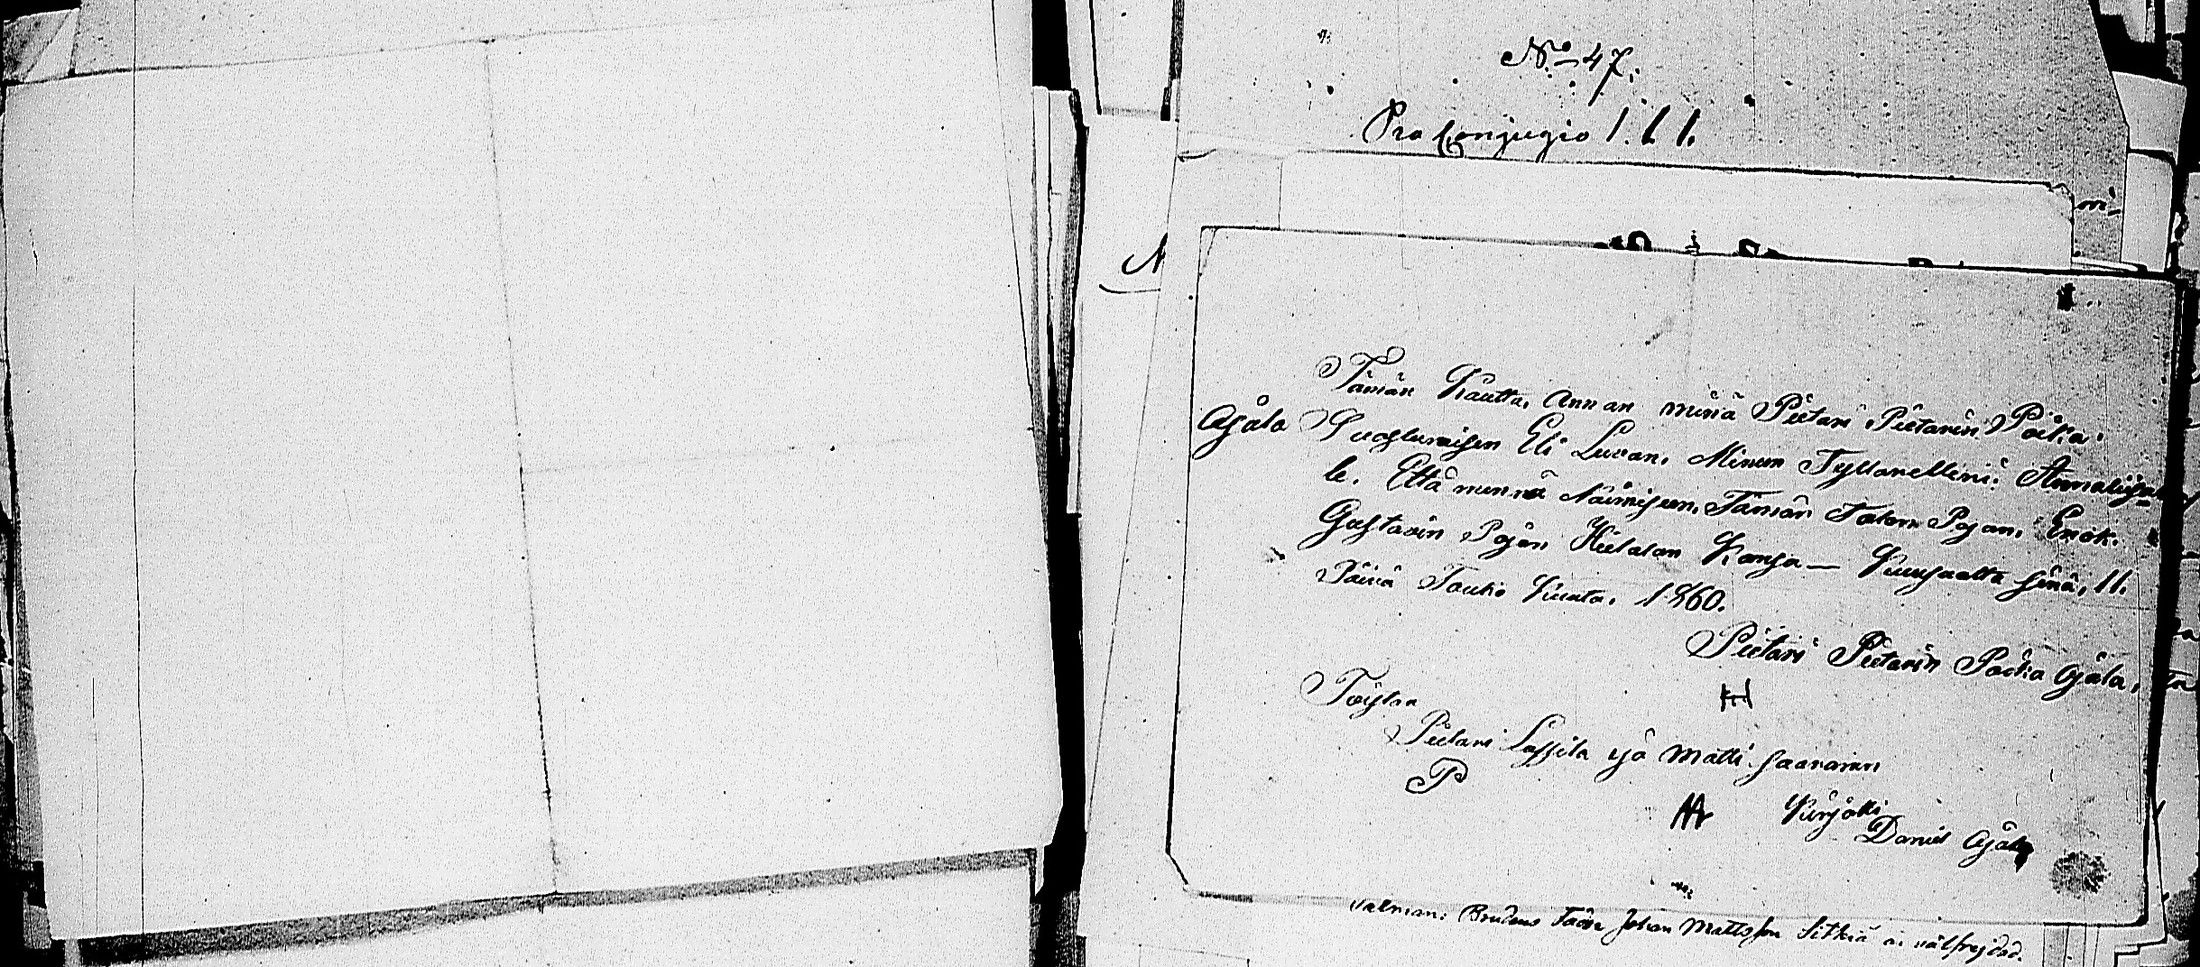 No 47.
Pro Conjugio 1. 1. 1.
Tämän Kautta, Annan minä Pietari Pietarin Poika
Ojala Suostumisen Eli Luvan, Minun Tyttärelleni: Annaliisal
le. Että mennä Naimiseen, Tämän Talon Pojan, Enok.
Gustavin Pojan Hietalan Kansa — Kuusaalla sinä, 11.
Päivä Touko Kuuta, 1860.
Pietari Pietarin Poika Ojala,
Toistaa
Pietari Lassila ja Matti Saararinen
P
Kirjotti
Daniel Ojala
Brudens Fader Johan Mattsson Sitkiä är välfrejdad.